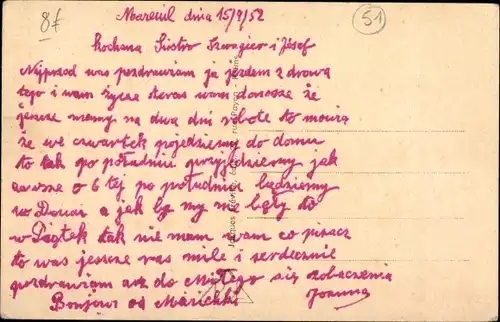 8f
51
Mareuil dnia 15/9/52
Kochana Siostro Szwagier i Józef
Najprzod was pozdrawiam ja jezdem zdrowa
tego i wam życze teras wam donosze że
jeszcze mamy na dwa dni robote to mowią
że we czwartek pojedziemy do domu
to tak po połudnui przyjdziemy jak
zawsze o 6 tej po połudnui będziemy
w Douai a jak by my ni były to
w Piątek tak nie mam wam co pisacz
to was jeszcze ras mile i serdecznie
pozdrawiam asz do Miłego się zobaczenia
Bonjour od Marichki
Joanna